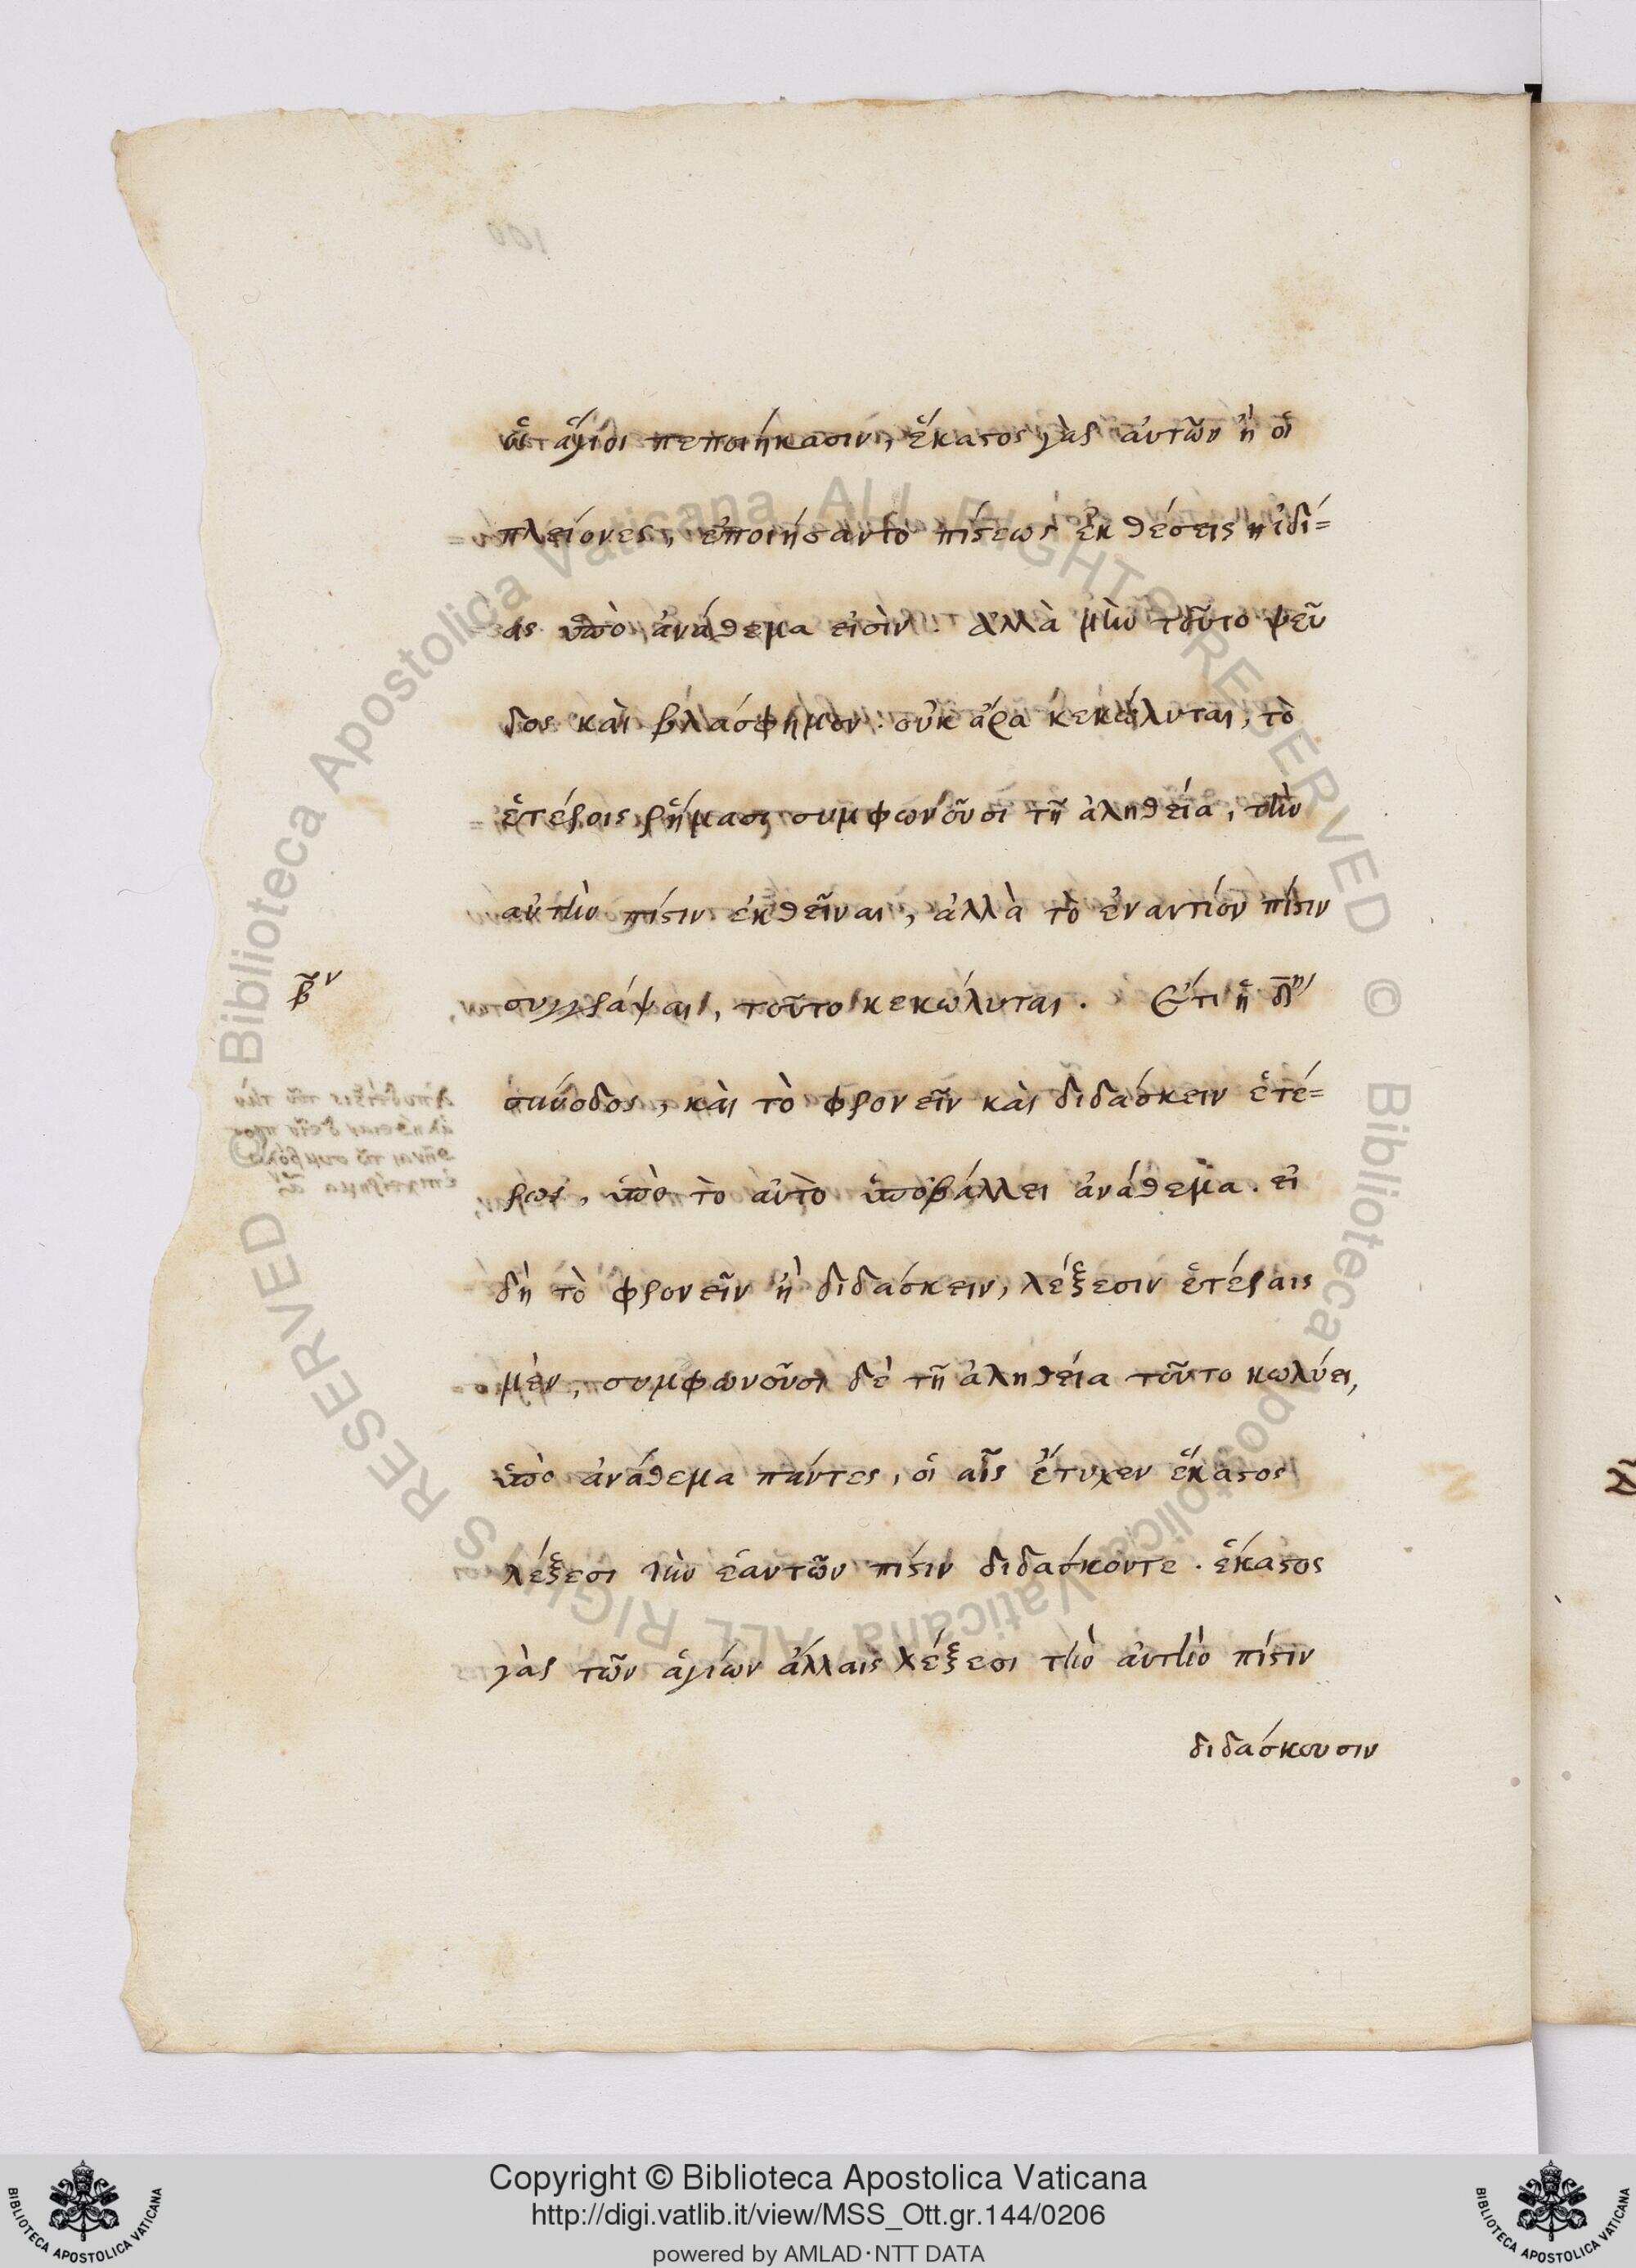 οἱ ἅγιοι πεποιήκασιν, ἕκαστος γὰρ αὐτῶν ἢ οἱ
πλείονες, ἐποιήσαντο πίστεως ἐκθέσεις ἢ ἰδί=
ας ὑπὸ ἀνάθεμα εἰσὶν. Ἀλλὰ μὴν τοῦτο ψεῦ
δος καὶ βλάσφημον. οὐκ ἄρα κεκώλυται, τὸ
ἑτέροις ῥήμασι συμφωνοῦσι τῇ ἀληθεία, τὴν
αὐτὴν πίστιν ἐκθεῖναι, ἀλλὰ τὸ ἐναντίον πίστιν
β̃ν
συγγράψαι, τοῦτο κεκώλυται. Ἔτι ἡ
σύνοδος, καὶ τὸ φρονεῖν καὶ διδάσκειν ἑτέ=
ρως, ὑπὸ τὸ αὐτὸ ὑποβάλλει ἀνάθεμα. εἰ
δὴ τὸ φρονεῖν ἢ διδάσκειν, λέξεσιν ἑτέραις
μὲν, συμφωνοῦσι δὲ τῇ ἀληθεία τοῦτο κωλύει,
ὑπὸ ἀνάθεμα πάντες, οἱ αἷς ἔτυχεν ἕκαστος
λέξεσι τὴν ἑαυτῶν πίστιν διδάσκοντε. ἕκαστος
γὰρ τῶν ἁγίων ἄλλαις λέξεσι τὴν αὐτὴν πίστιν
διδάσκουσιν
Copyright © Biblioteca Apostolica Vaticana
http://digi.vatlib.it/view/MSS_Ott.gr.144/0206
powered by AMLAD·NTT DATA
BIBLIOTECA APOSTOLICA VATICANA
BIBLIOTECA APOSTOLICA VATICANA
© Biblioteca Apostolica Vaticana ALL RIGHTS RESERVED
© Biblioteca Apostolica Vaticana ALL RIGHTS RESERVED